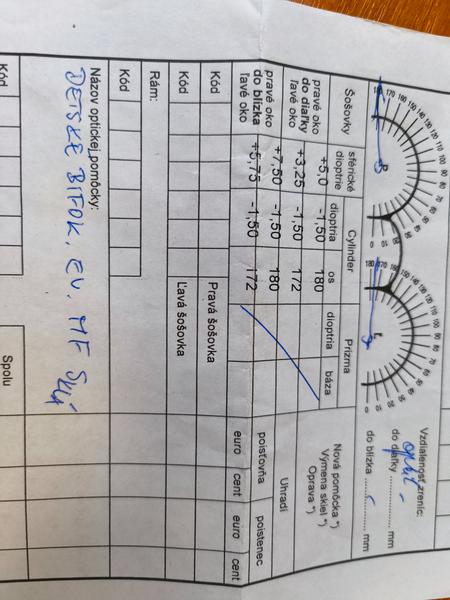 Vzdialenosť zreníc:
do diaľky ........ mm
do blízka ........ mm
Šošovky
sférické dioptrie
Cylinder
dioptria
os
Prizma
dioptria
báza
Nová pomôcka *)
Výmena skiel *)
Oprava *)
pravé oko +5,0 -1,50 180
do diaľky
ľavé oko +3,25 -1,50 172
pravé oko +7,50 -1,50 180
do blízka
ľavé oko +5,75 -1,50 172
Uhradí
poisťovňa
poistenec
euro cent euro cent
Kód
Pravá šošovka
Kód
Ľavá šošovka
Rám:
Kód
Názov optickej pomôcky:
DETSKÉ BIFOK, EV. MF SKLÁ
Kód
Spolu